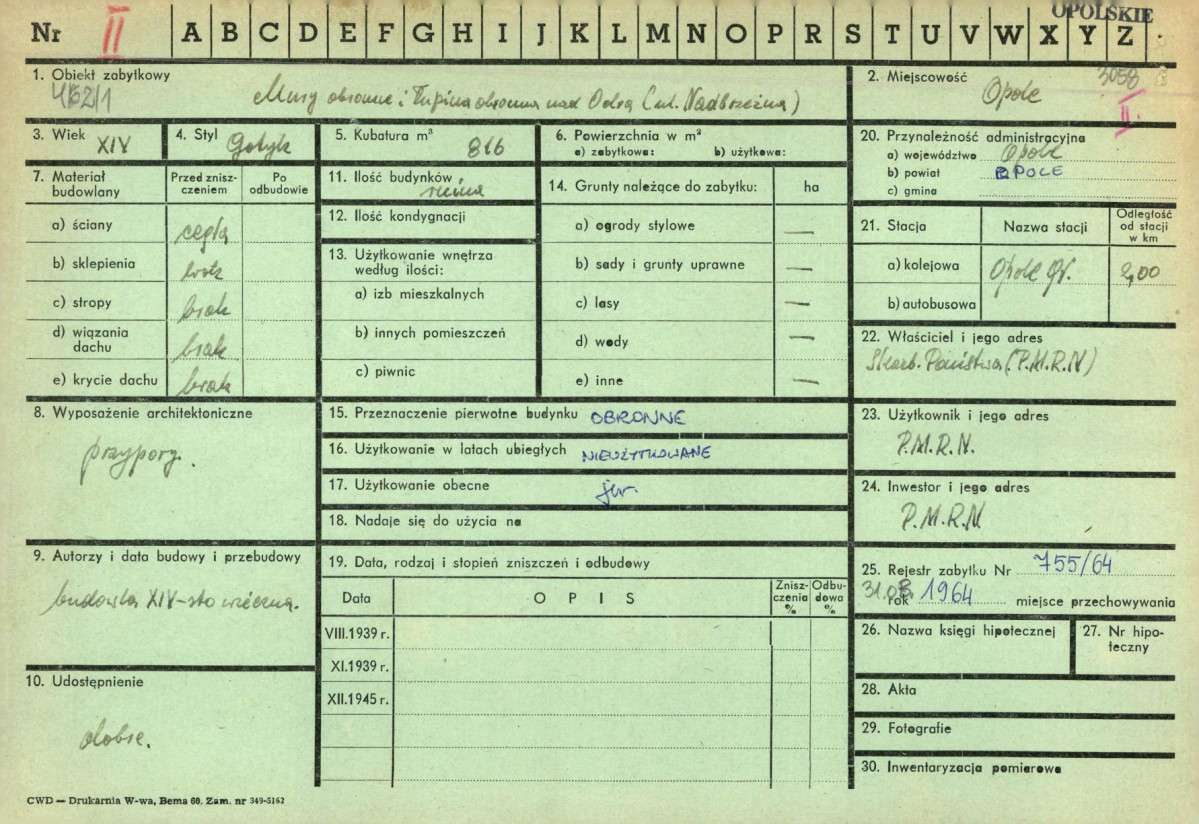 OPOLSKIE
Nr II A B C D E F G H I J K L M N O P R S T U V W X Y Z
1. Obiekt zabytkowy
Mury obronne i obronna nad Odrą (ul. Nadbrzeżna)
2. Miejscowość 3058
Opole II.
3. Wiek XIV
4. Styl Gotyk
5. Kubatura m³ 816
6. Powierzchnia w m²
a) zabytkowa: b) użytkowa:
7. Materiał budowlany
Przed zniszczeniem
Po odbudowie
a) ściany cegła
b) sklepienia brak
c) stropy brak
d) wiązania dachu brak
e) krycie dachu brak
8. Wyposażenie architektoniczne
przypory.
9. Autorzy i data budowy i przebudowy
budowla XIV-sto wieczna.
10. Udostępnienie
dobre.
11. Ilość budynków ruina
12. Ilość kondygnacji
13. Użytkowanie wnętrza
według ilości:
a) izb mieszkalnych
b) innych pomieszczeń
c) piwnic
14. Grunty należące do zabytku: ha
a) ogrody stylowe —
b) sady i grunty uprawne —
c) lasy —
d) wody —
e) inne —
15. Przeznaczenie pierwotne budynku OBRONNE
16. Użytkowanie w latach ubiegłych NIEUŻYTKOWANE
17. Użytkowanie obecne jw.
18. Nadaje się do użycia na
19. Data, rodzaj i stopień zniszczeń i odbudowy
Data OPIS Zniszczenia % Odbudowa %
VIII.1939 r.
XI.1939 r.
XII.1945 r.
20. Przynależność administracyjna
a) województwo Opole
b) powiat OPOLE
c) gmina
21. Stacja Nazwa stacji Odległość od stacji w km
a) kolejowa Opole Gł. 2,00
b) autobusowa
22. Właściciel i jego adres
Skarb. Państwa (P.M.R.N)
23. Użytkownik i jego adres
P.M.R.N.
24. Inwestor i jego adres
P.M.R.N.
25. Rejestr zabytku Nr 755/64
rok 1964 miejsce przechowywania
26. Nazwa księgi hipotecznej
27. Nr hipoteczny
28. Akta
29. Fotografie
30. Inwentaryzacja pomiarowa
CWD — Drukarnia W-wa, Bema 60. Zam. nr 349-5162